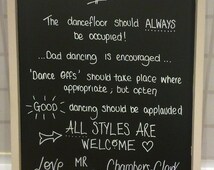 The dancefloor should ALWAYS
be occupied!
... Dad dancing is encouraged ...
'Dance offs' should take place where
appropriate, but often
GOOD dancing should be applauded
ALL STYLES ARE
WELCOME ♡
Love MR Chambers-Clark